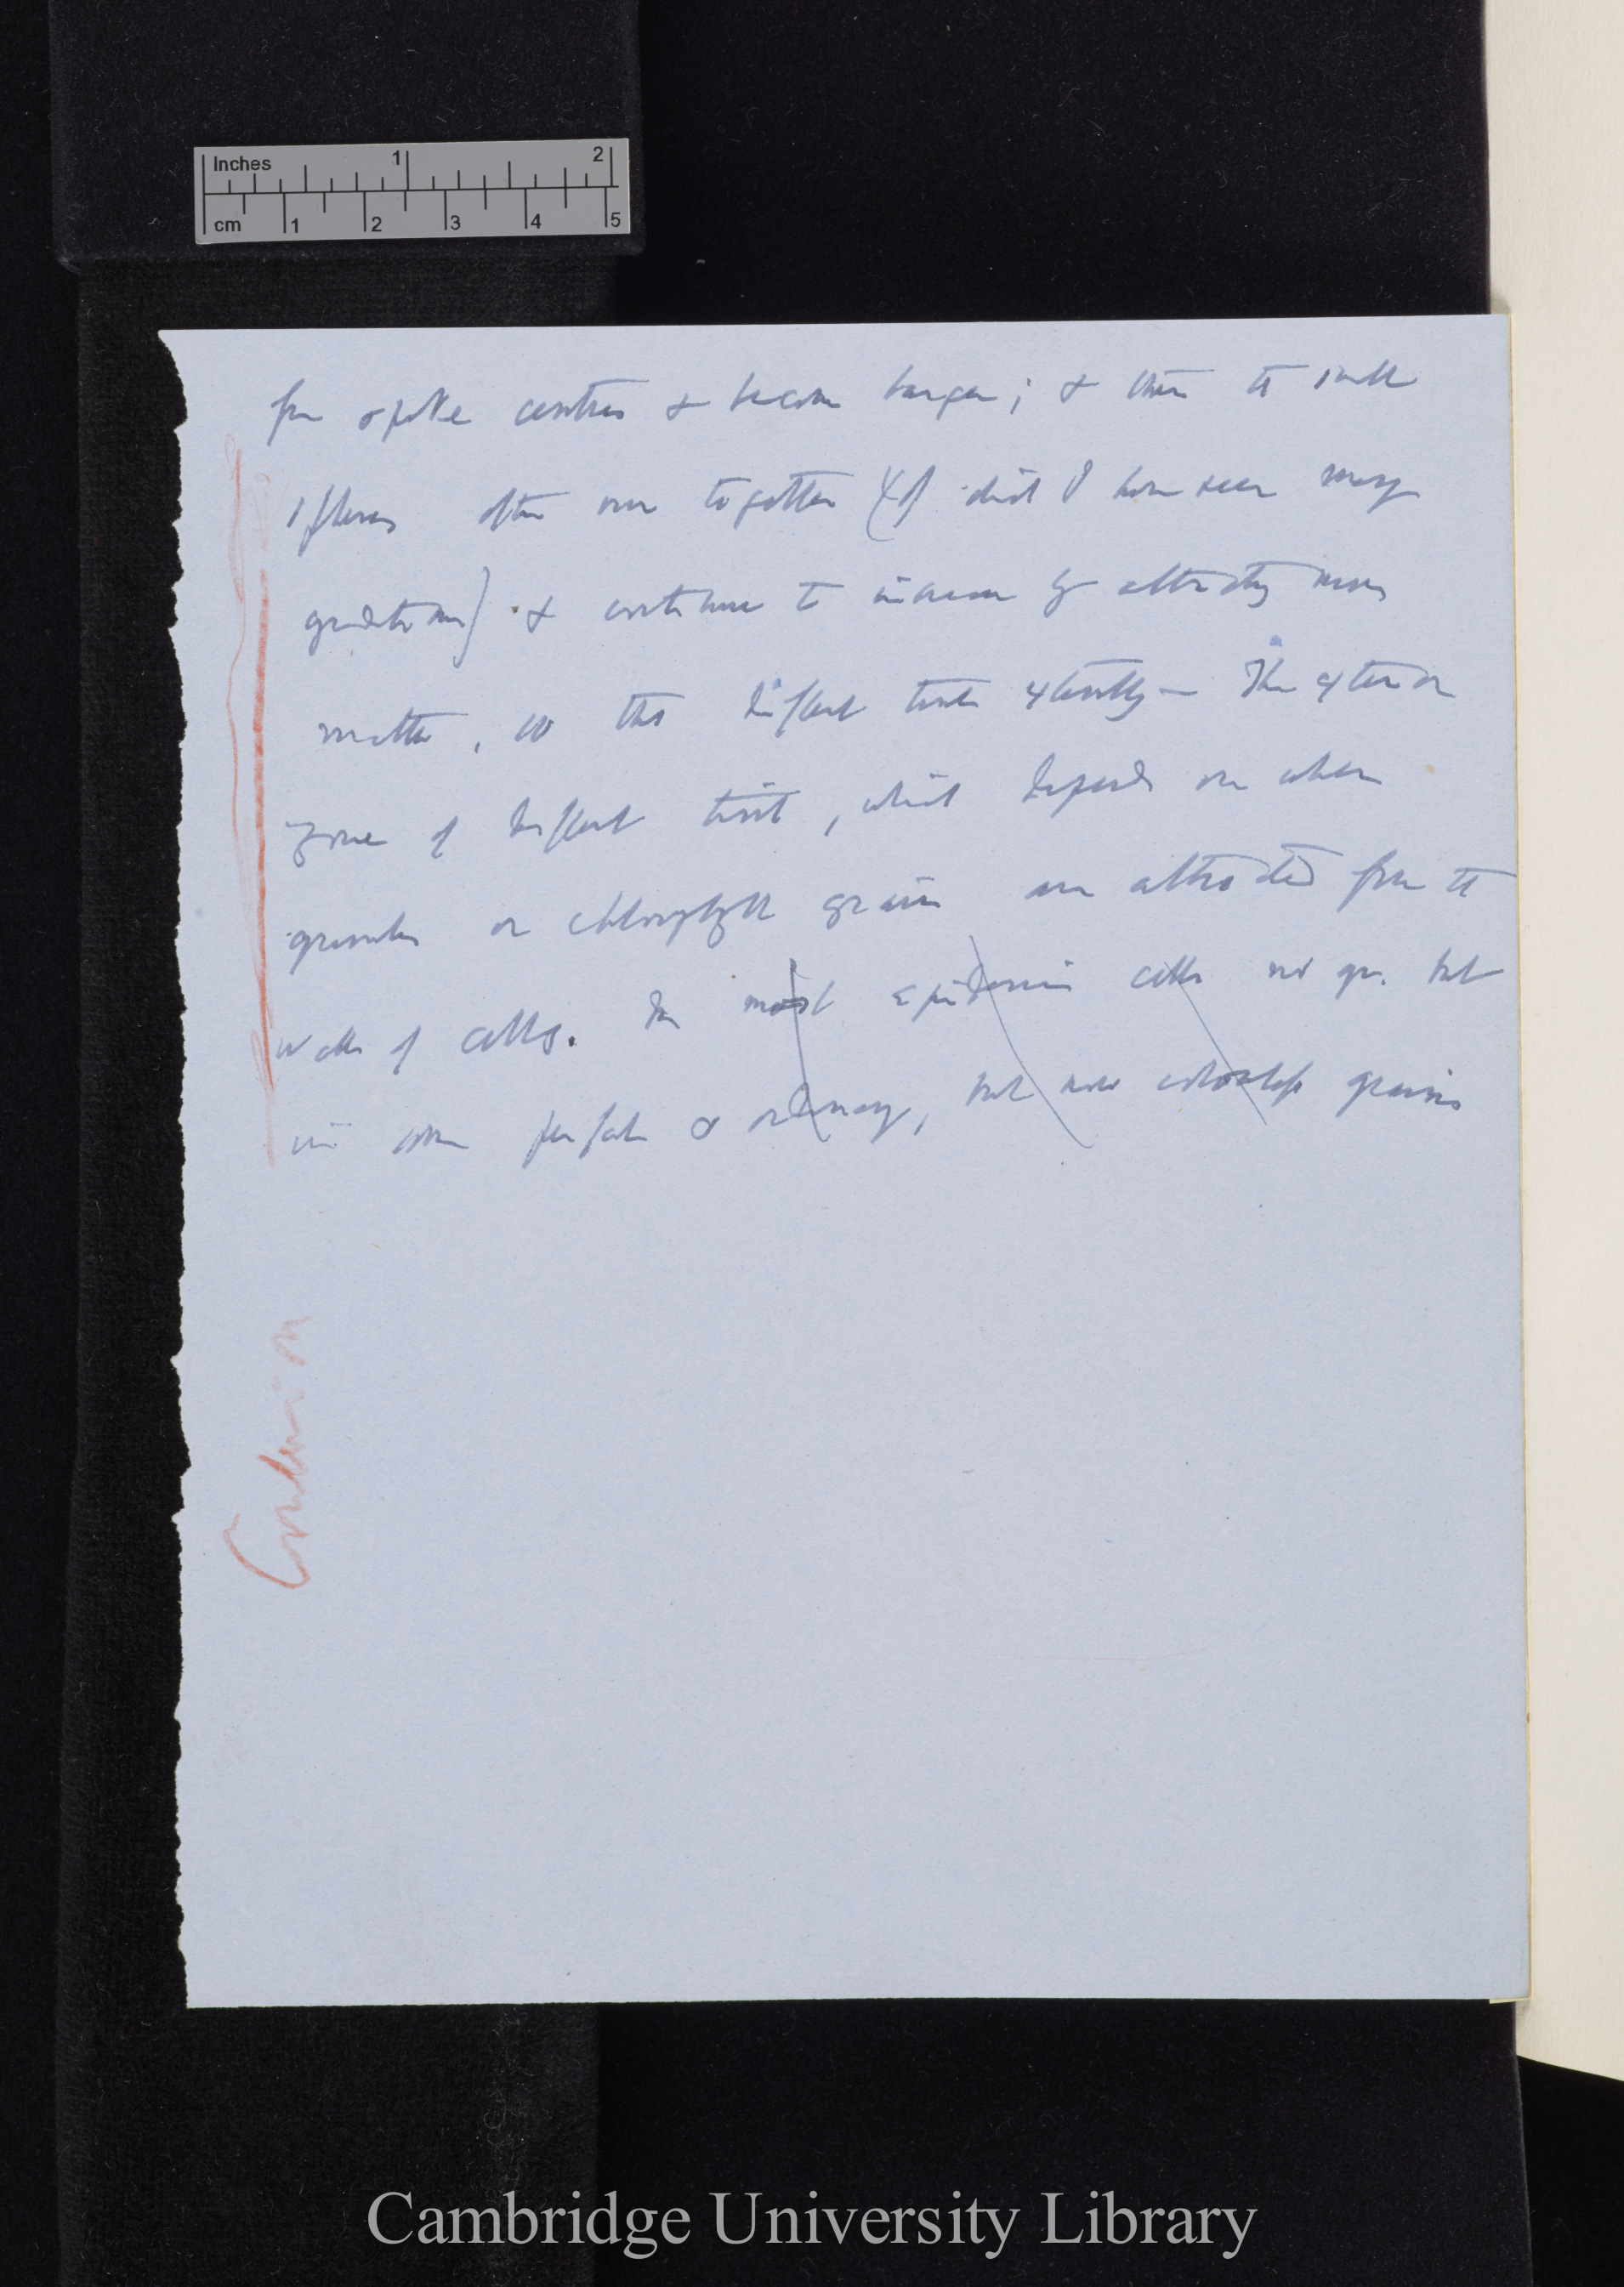 Inches 1 2
cm 1 2 3 4 5
centres & become larger; & then the small
spheres often run together (of which I have seen many
gradations) & continue to increase by attracting more
matter, so this different tints externally — The exterior
zone of different tint, which depends on when
granules or chlorophyll grains are attracted from the
walls of cells. In most epidermic cells no gr. but
in some perfect & ordinary, but now grains
Conclusion
Cambridge University Library